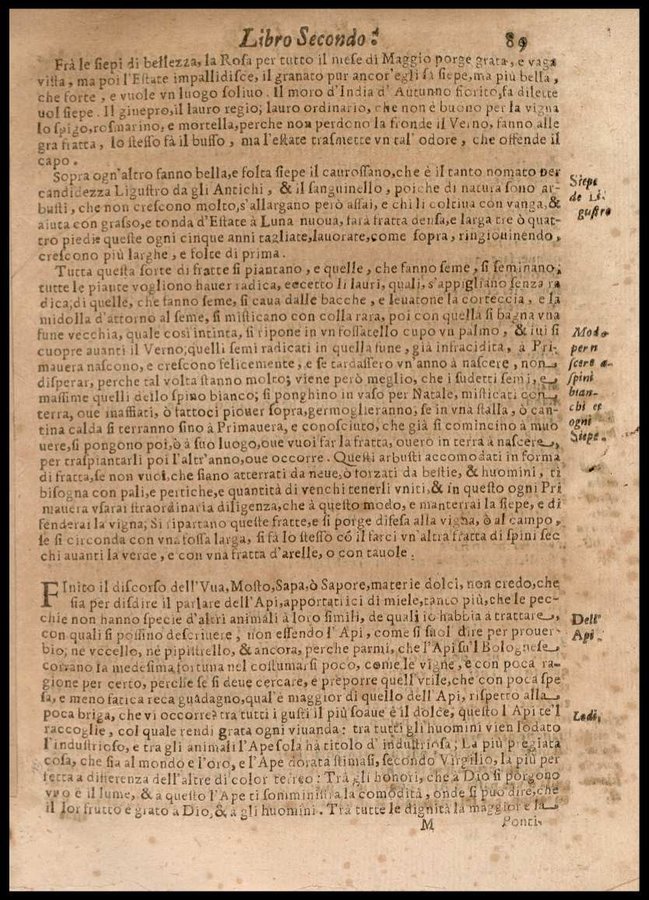 Libro Secondo. 89
Frà le siepi di bellezza, la Rosa per tutto il mese di Maggio porge grata, e vaga
vista, ma poi l'Estate impallidisce, il granato pur ancor'egli fà siepe, ma più bella,
che forte, e vuole vn luogo soliuo. Il moro d'India d'Autunno fiorito, fa dilette
uol siepe. Il ginepro, il lauro regio; lauro ordinario, che non è buono per la vigna
lo spigo, rosmarino, e mortella, perche non perdono la fronde il Verno, fanno alle
gra fratta, lo stesso fà il busso, ma l'estate trasmette vn tal'odore, che offende il
capo.
Sopra ogn'altro fanno bella, e folta siepe il caurossano, che è il tanto nomato per
candidezza Ligustro da gli Antichi, & il sanguinello, poiche di natura sono ar-
busti, che non crescono molto, s'allargano però assai, e chi li coltiua con vanga, &
aiuta con grasso, e tonda d'Estate à Luna nuoua, farà fratta densa, e larga tre ò quat-
tro piedi e queste ogni cinque anni tagliate, lauorate, come sopra, ringiouinendo,
crescono più larghe, e folte di prima.
Siepe
de Li-
gustro
Tutta questa sorte di fratte si piantano, e quelle, che fanno seme, si seminano;
tutte le piante vogliono hauer radica, eccetto li lauri, quali, s'appigliano senza ra
dica; di quelle, che fanno seme, si caua dalle bacche, e leuatone la corteccia, e la
midolla d'attorno al seme, si misticano con colla rara, poi con quella si bagna vna
fune vecchia, quale così intinta, si ripone in vn fossatello cupo vn palmo, & iui si
cuopre auanti il Verno; quelli semi radicati in quella fune, già infracidita, à Pri-
mauera nascono, e crescono felicemente, e se tardassero vn'anno à nascere, non
disperar, perche tal volta stanno molto; viene però meglio, che i sudetti semi, e
massime quelli dello spino bianco; si ponghino in vaso per Natale, misticati con
terra, oue inaffiati, ò fattoci piouer sopra, germoglieranno; se in vna stalla, ò can-
tina calda si terranno sino à Primauera, e conosciuto, che già si comincino à muo
uere, si pongono poi, ò à suo luogo, oue vuoi far la fratta, ouero in terra à nascere,
per traspiantarli poi l'altr'anno, oue occorre. Questi arbusti accomodati in forma
di fratta, se non vuoi, che siano atterrati da neue, ò forzati da bestie, & huomini, ti
bisogna con pali, e pertiche, e quantità di venchi tenerli vniti, & in questo ogni Pri
mauera vsarai straordinaria diligenza, che à questo modo, e manterrai la siepe, e di
fenderai la vigna; Si ripartano queste fratte, e si porge difesa alla vigna, ò al campo,
se si circonda con vna fossa larga, si fà lo stesso cō il farci vn'altra fratta di spini sec
chi auanti la verde, e con vna fratta d'arelle, o con tauole.
Modo
per
spini
bian-
chi et
ogni
Siepe.
FInito il discorso dell'Vua, Mosto, Sapa, ò Sapore, materie dolci, non credo, che
sia per disdire il parlare dell'Api, apportatrici di miele, tanto più, che le pec-
chie non hanno specie d'altri animali à loro simili, de quali io habbia à trattare,
con quali si possino descriuere, non essendo l'Api, come si suol dire per prouer-
bio; ne vccello, nè pipistrello, & ancora, perche parmi, che l'Api sù'l Bolognese
corrano la medesima fortuna nel costumarsi poco, come le vigne, e con poca ra-
gione per certo, perche se si deue cercare, e preporre quell'vtile, che con poca spe
sa, e meno fatica reca guadagno, qual'è maggior di quello dell'Api, rispetto alla
poca briga, che vi occorre? tra tutti i gusti il più soaue è il dolce, questo l'Api te'l
raccoglie, col quale rendi grata ogni viuanda: tra tutti gli huomini vien lodato
l'industrioso, e tra gli animali l'Ape sola hà titolo d'industriosa; La più pregiata
cosa, che sia al mondo e l'oro, e l'Ape dorata stimasi, secondo Virgilio, la più per
fetta a differenza dell'altre di color terreo: Trà gli honori, che à Dio si porgono
vno è il lume, & a questo l'Ape ti somministra la comodità, onde si può dire, che
il lor frutto e grato a Dio, & à gli huomini. Tra tutte le dignità la maggior e la
Dell'
Api.
Lodi,
M Ponti-